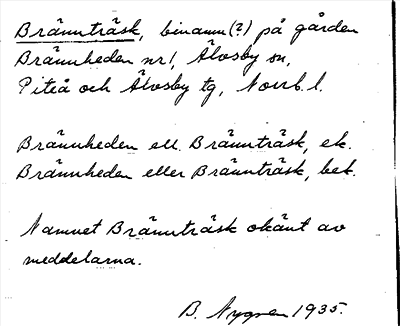 Brännträsk, binamn(?) på gården
Brännheden nr 1, Älvsby sn,
Piteå och Älvsby tg, Norrb. l.
Brännheden ell. Brännträsk, ek.
Brännheden eller Brännträsk, bet.
Namnet Brännträsk okänt av
meddelarna.
B. Nygren 1935.